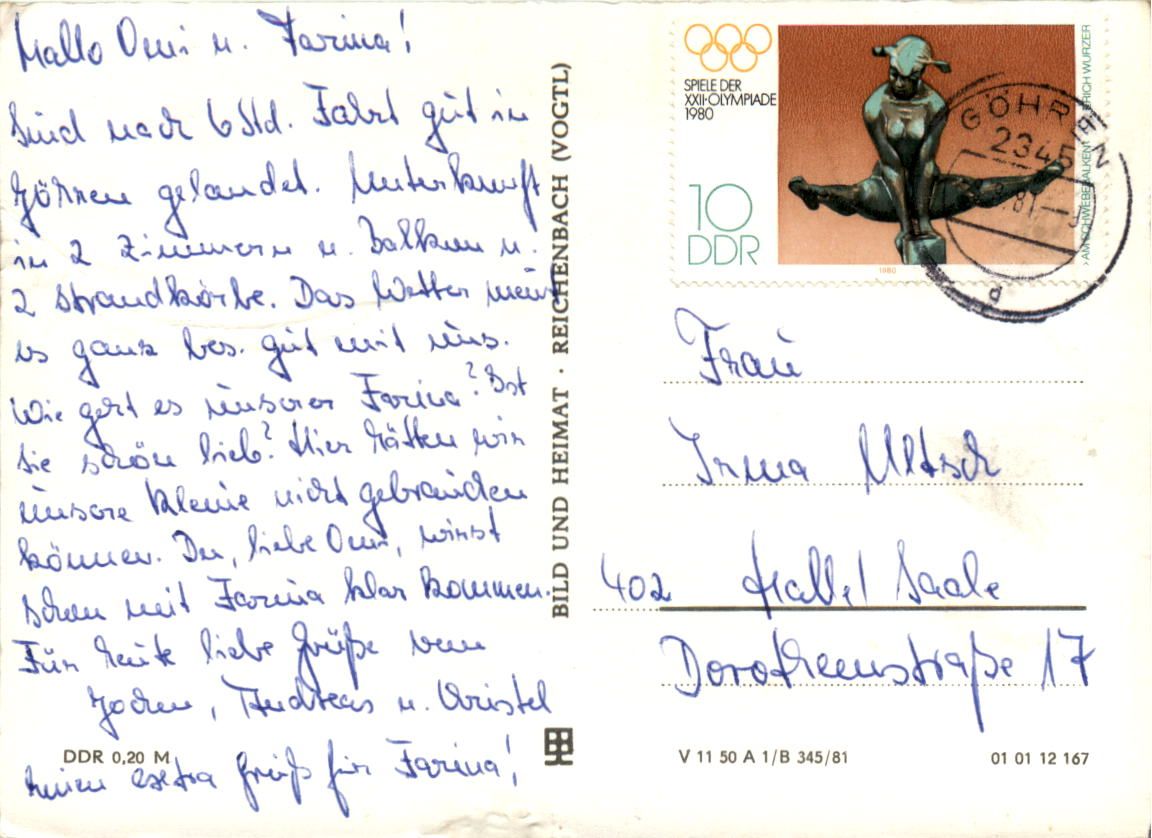 Hallo Omi u. Farina!
Sind nach 6 Std. Fahrt gut in
Göhren gelandet. Unterkunft
in 2 Zimmern u. Balkon u.
2 Strandkörbe. Das Wetter meint
es ganz bes. gut mit uns.
Wie geht es unserer Farina? Ist
sie schön lieb? Hier hätten wir
unsere Kleine nicht gebrauchen
können. Du, liebe Omi, wirst
schon mit Farina klar kommen.
Für heute liebe Grüße von
Jochen, Andreas u. Christel
einen extra Gruß für Farina!
DDR 0,20 M
BILD UND HEIMAT · REICHENBACH (VOGTL)
SPIELE DER
XXII·OLYMPIADE
1980
10
DDR
›AM SCHWEBEBALKEN‹ ERICH WURZER
1980
GÖHREN
2345
81
Frau
Irma Ultsch
402 Halle/Saale
Dorotheenstraße 17
V 11 50 A 1/B 345/81
01 01 12 167